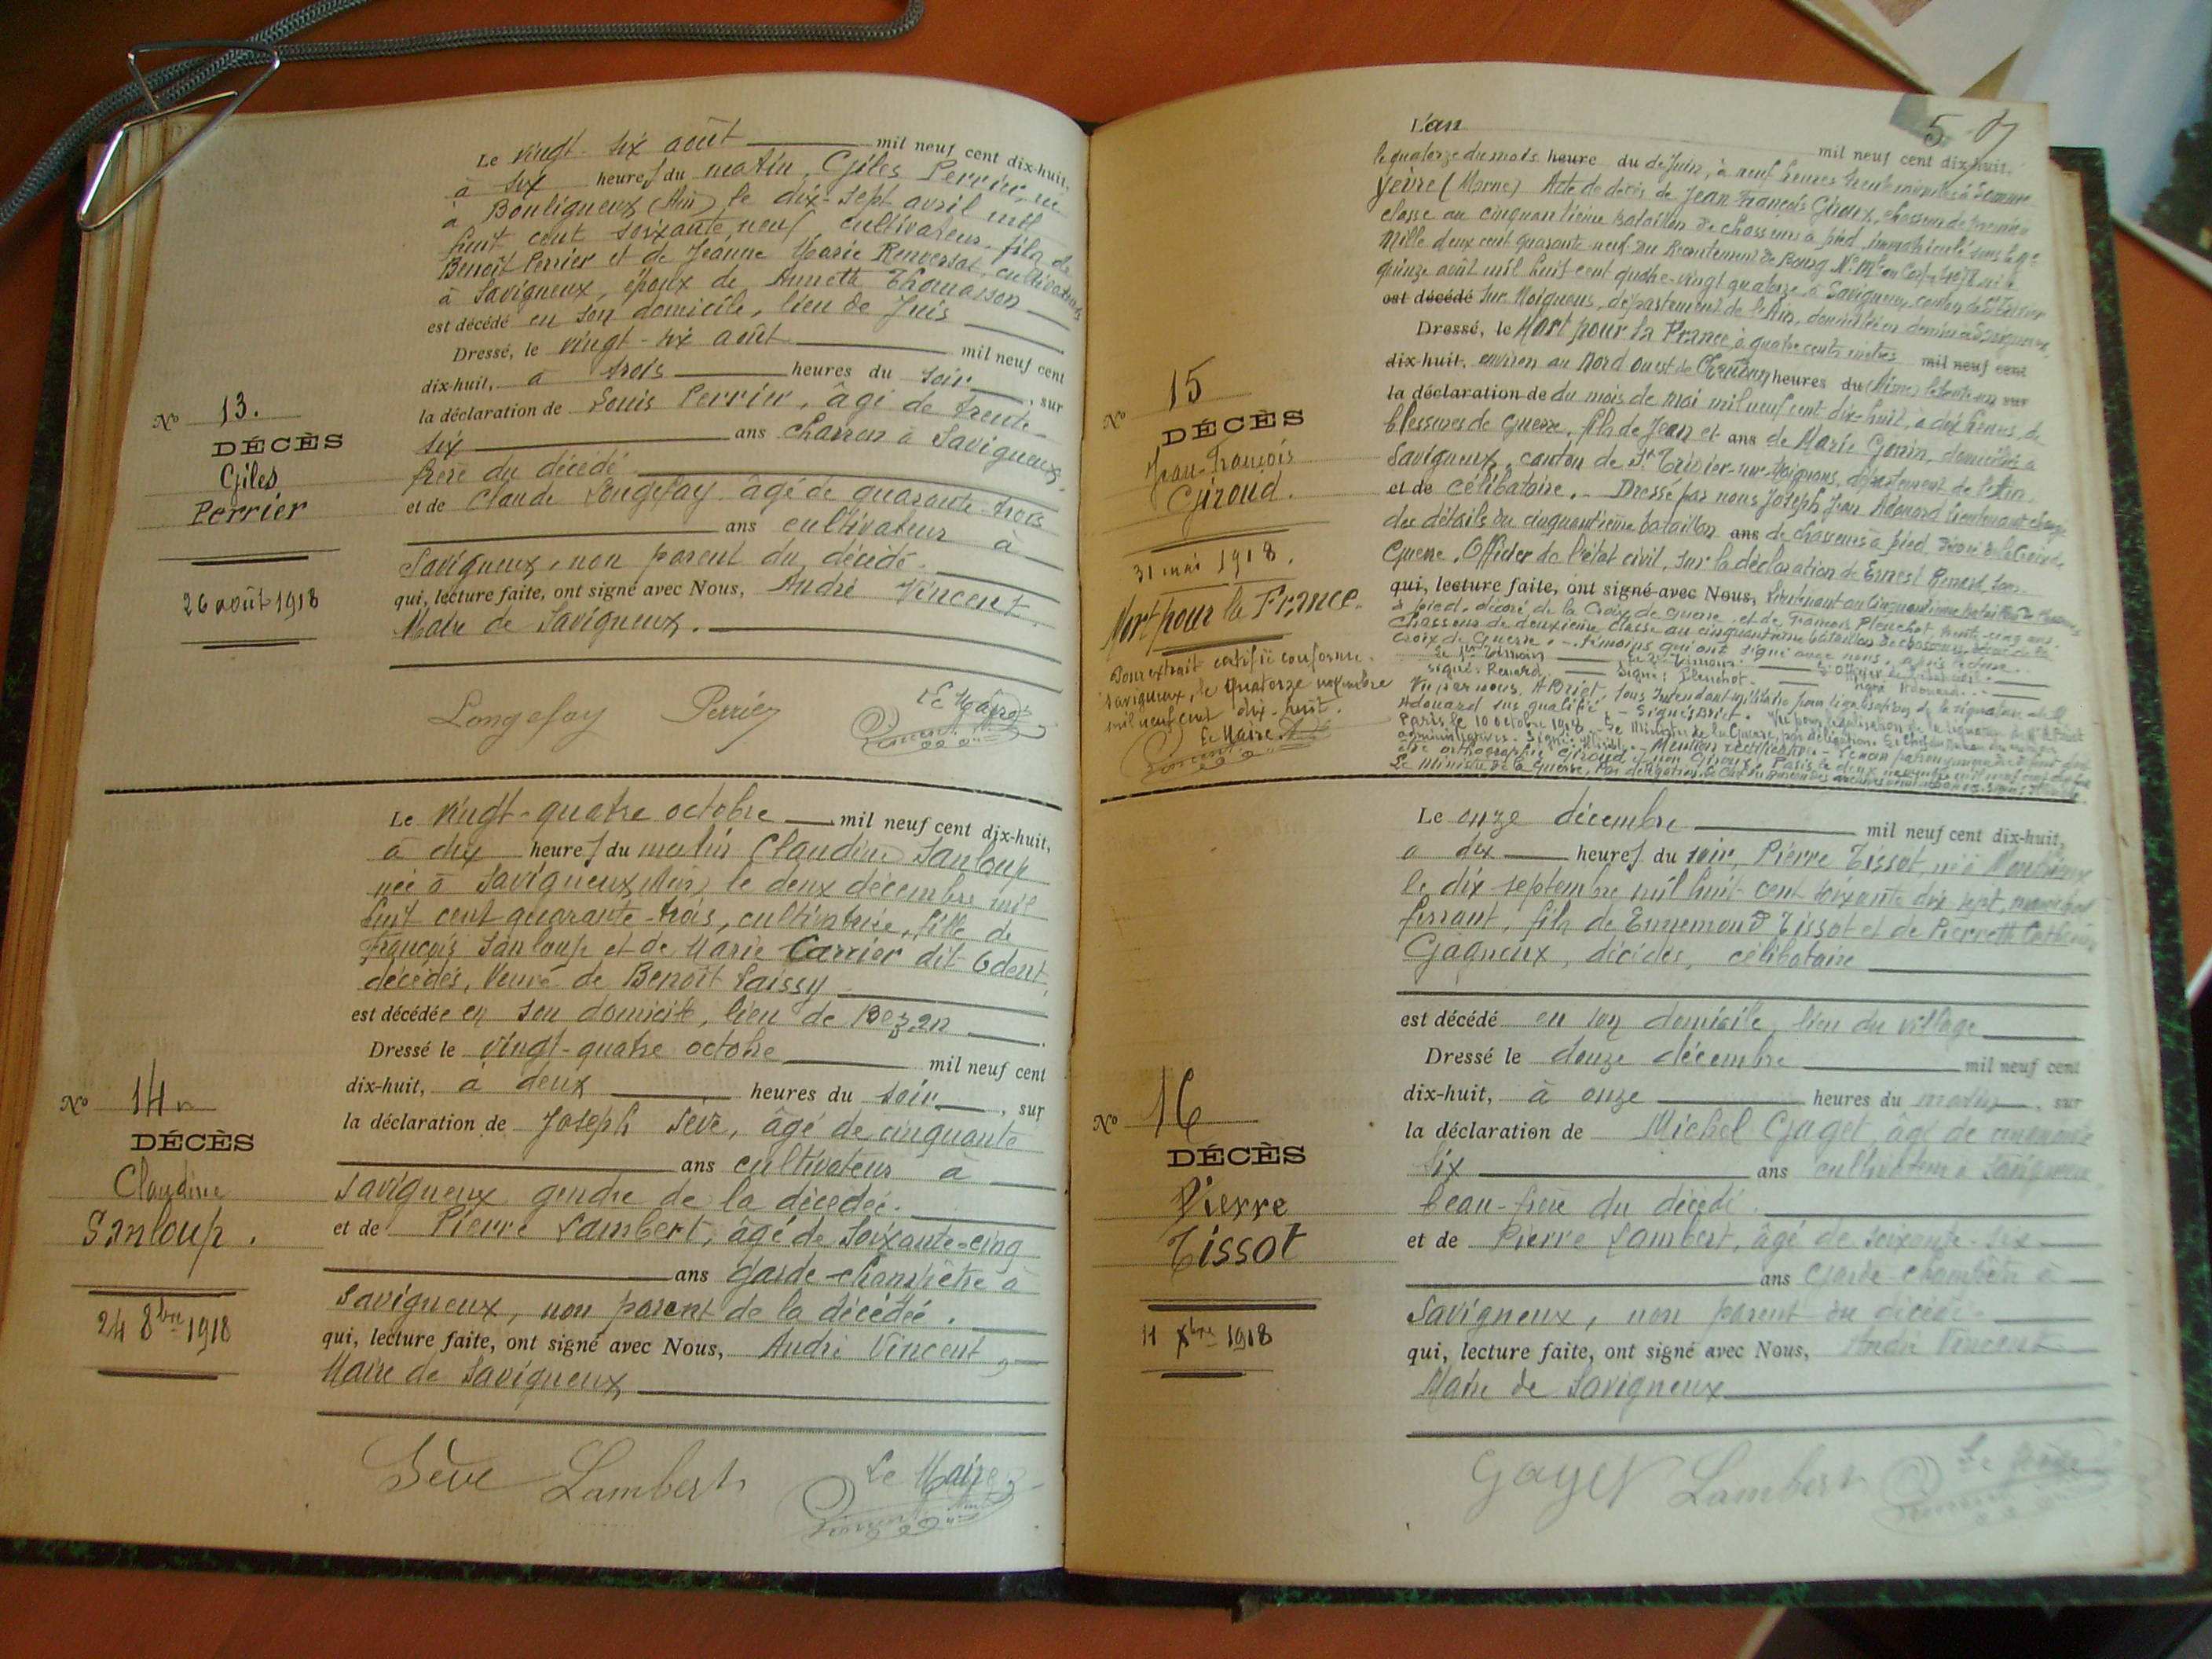 Le vingt-six août mil neuf cent dix-huit,
à six heures du matin, Giles Perrier, né
à Bouligneux (Ain) le dix-sept avril mil
huit cent soixante neuf, cultivateur, fils de
Benoît Perrier et de Jeanne Marie Renversat, cultivateurs
à Savigneux, époux de Annette Thomasson
est décédé en son domicile, lieu de Juis
Dressé, le vingt-six août mil neuf cent
dix-huit, à trois heures du soir, sur
la déclaration de Louis Perrier, âgé de trente-
six ans charron à Savigneux,
frère du décédé
et de Claude Longefay âgé de quarante-trois
ans cultivateur à
Savigneux, non parent du décédé.
qui, lecture faite, ont signé avec Nous, André Vincent,
Maire de Savigneux.
No 13.
DÉCÈS
Giles
Perrier
26 août 1918
Longefay Perrier Le Maire
Vincent
Le vingt-quatre octobre mil neuf cent dix-huit,
à dix heures du matin Claudine Sanloup
née à Savigneux (Ain) le deux décembre mil
huit cent quarante-trois, cultivatrice, fille de
François Sanloup et de Marie Carrier dit Odent,
décédés, Veuve de Benoît Laissy
est décédée en son domicile, lieu de Bezan
Dressé le vingt-quatre octobre mil neuf cent
dix-huit, à deux heures du soir, sur
la déclaration de Joseph Sève, âgé de cinquante
ans cultivateur à
Savigneux gendre de la décédée.
et de Pierre Lambert, âgé de soixante-cinq
ans garde-champêtre à
Savigneux, non parent de la décédée.
qui, lecture faite, ont signé avec Nous, André Vincent,
Maire de Savigneux
No 14
DÉCÈS
Claudine
Sanloup.
24 8bre 1918
Sève Lambert Le Maire
Vincent
5
L'an mil neuf cent dix-huit,
le quatorze du mois heure du de Juin, à neuf heures trente minutes à Somme
Yèvre (Marne) Acte de décès de Jean François Giroux, chasseur de première
classe au cinquantième Bataillon de chasseurs à pied, immatriculé sous le No
Mille deux cent quarante neuf du Recrutement de Bourg No Mle au Corps né le
quinze août mil huit cent quatre-vingt quatorze, à Savigneux, canton de St Trivier
est décédé sur Moignans, département de l'Ain, domicilié en dernier à Savigneux,
Dressé, le Mort pour la France, à quatre cents mètres mil neuf cent
dix-huit, environ au Nord ouest de heures du (Aisne) le trente un sur
la déclaration de du mois de mai mil neuf cent dix-huit, à dix heures, de
blessures de guerre, fils de Jean et ans de Marie Gonin, domiciliés à
Savigneux, canton de St Trivier-sur-Moignans, département de l'Ain.
et de célibataire. - Dressé par nous Joseph Jean Adouard Lieutenant chargé
des détails du cinquantième bataillon ans de chasseurs à pied décoré de la Croix de
Guerre, Officier de l'état civil, sur la déclaration de Ernest Renard,
qui, lecture faite, ont signé avec Nous, Lieutenant au cinquantième bataillon de chasseurs
à pied, décoré de la Croix de guerre, et de François Planchot, trente-cinq ans,
Chasseur de deuxième classe au cinquantième bataillon de chasseurs, décoré de la
Croix de Guerre. - témoins qui ont signé avec nous, après lecture.
Le 1er Témoin Le 2e Témoin L'Officier de l'état civil
signé: Renard signé: Planchot signé Adouard.
Vu par nous, A Briet, Sous Intendant militaire pour légalisation de la signature de M
Adouard sus qualifié. - Signé: Briet. - Vu pour légalisation de la signature de M. Briet
Paris le 10 octobre 1918. - Le Ministre de la Guerre, par délégation, Le Chef du Bureau des
administratives. Signé: Illisible. - Mention rectificative. - Le nom patronymique du défunt doit
être orthographié Giroud et non Giroux. Paris le deux novembre mil neuf cent dix-huit
Le Ministre de la Guerre, Par délégation, Le Chef du Bureau des archives
No 15
DÉCÈS
Jean-François
Giroud.
31 mai 1918.
Mort pour la France.
Pour extrait certifié conforme.
Savigneux, le quatorze novembre
mil neuf cent dix-huit.
Le Maire
Vincent
Le onze décembre mil neuf cent dix-huit,
à dix heures du soir, Pierre Tissot, né à Monthieux
le dix septembre mil huit-cent soixante dix sept, maréchal
ferrant, fils de Ennemond Tissot et de Pierrette Catherine
Gagneux, décédés, célibataire
est décédé en son domicile, lieu du village
Dressé le douze décembre mil neuf cent
dix-huit, à onze heures du matin, sur
la déclaration de Michel Gaget, âgé de cinquante
six ans cultivateur à Savigneux
beau-frère du décédé.
et de Pierre Lambert, âgé de soixante-six
ans garde-champêtre à
Savigneux, non parent du décédé.
qui, lecture faite, ont signé avec Nous, André Vincent
Maire de Savigneux
No 16
DÉCÈS
Pierre
Tissot
11 Xbre 1918
Gayet Lambert Le Maire
Vincent